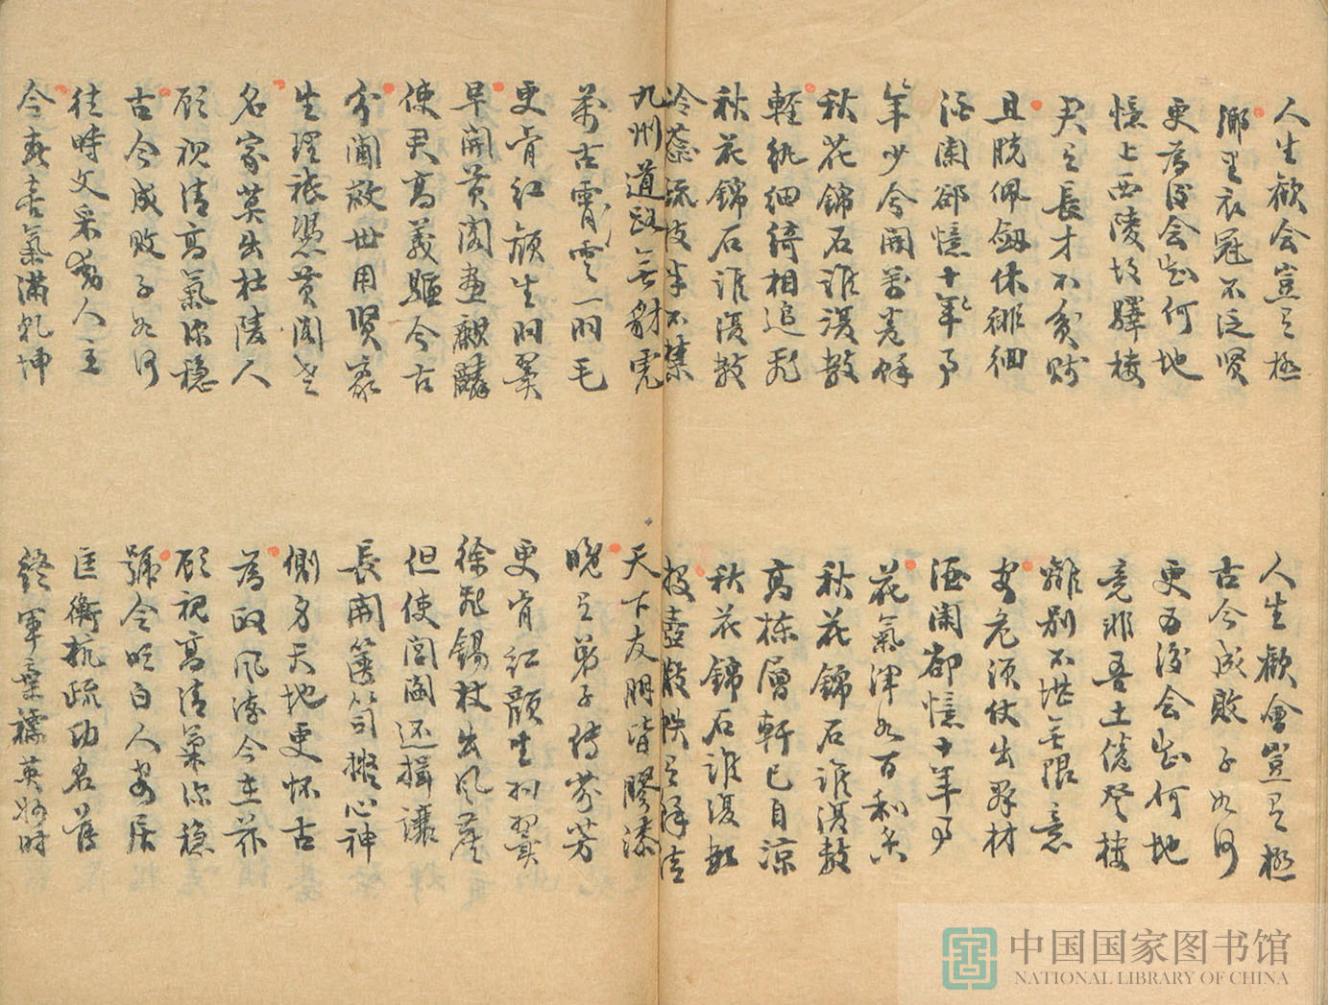 人生歡会豈有極
鄉里衣冠不乏賢
更為後会知何地
憶上西陵故驛樓
君有長才不貧賤
且脫佩劔休徘徊
酒闌卻憶十年事
年少今開萬卷餘
秋花錦石誰復數
輕紈細綺相追飛
秋花錦石誰復數
冷蕊疏枝半不禁
九州道路無豺虎
萬古霄雲一羽毛
更肯紅顏生羽翼
早開黃閣畫麒麟
使君高義驅今古
分閫救世用賢豪
生理祗憑黃閣老
名家莫出杜陵人
顧視清高氣深穩
古今成敗子如何
往時文采動人主
今春喜氣滿乾坤
人生歡會豈有極
古今成敗子如何
更為後会知何地
竟非吾土倦登樓
離別不堪無限意
安危須仗出群材
酒闌卻憶十年事
花氣渾如百和香
秋花錦石誰復數
高棟層軒已自涼
秋花錦石誰復數
投壺散帙有餘清
天下友朋皆膠漆
晚有弟子傳芬芳
更肯紅顏生羽翼
徐飛錫杖出風塵
但使閭閻還揖讓
長開篋笥擬心神
側身天地更懷古
為政風流今在茲
顧視高清氣深穩
號令明白人安居
匡衡抗疏功名薄
終軍棄繻英妙時
中国国家图书馆
NATIONAL LIBRARY OF CHINA